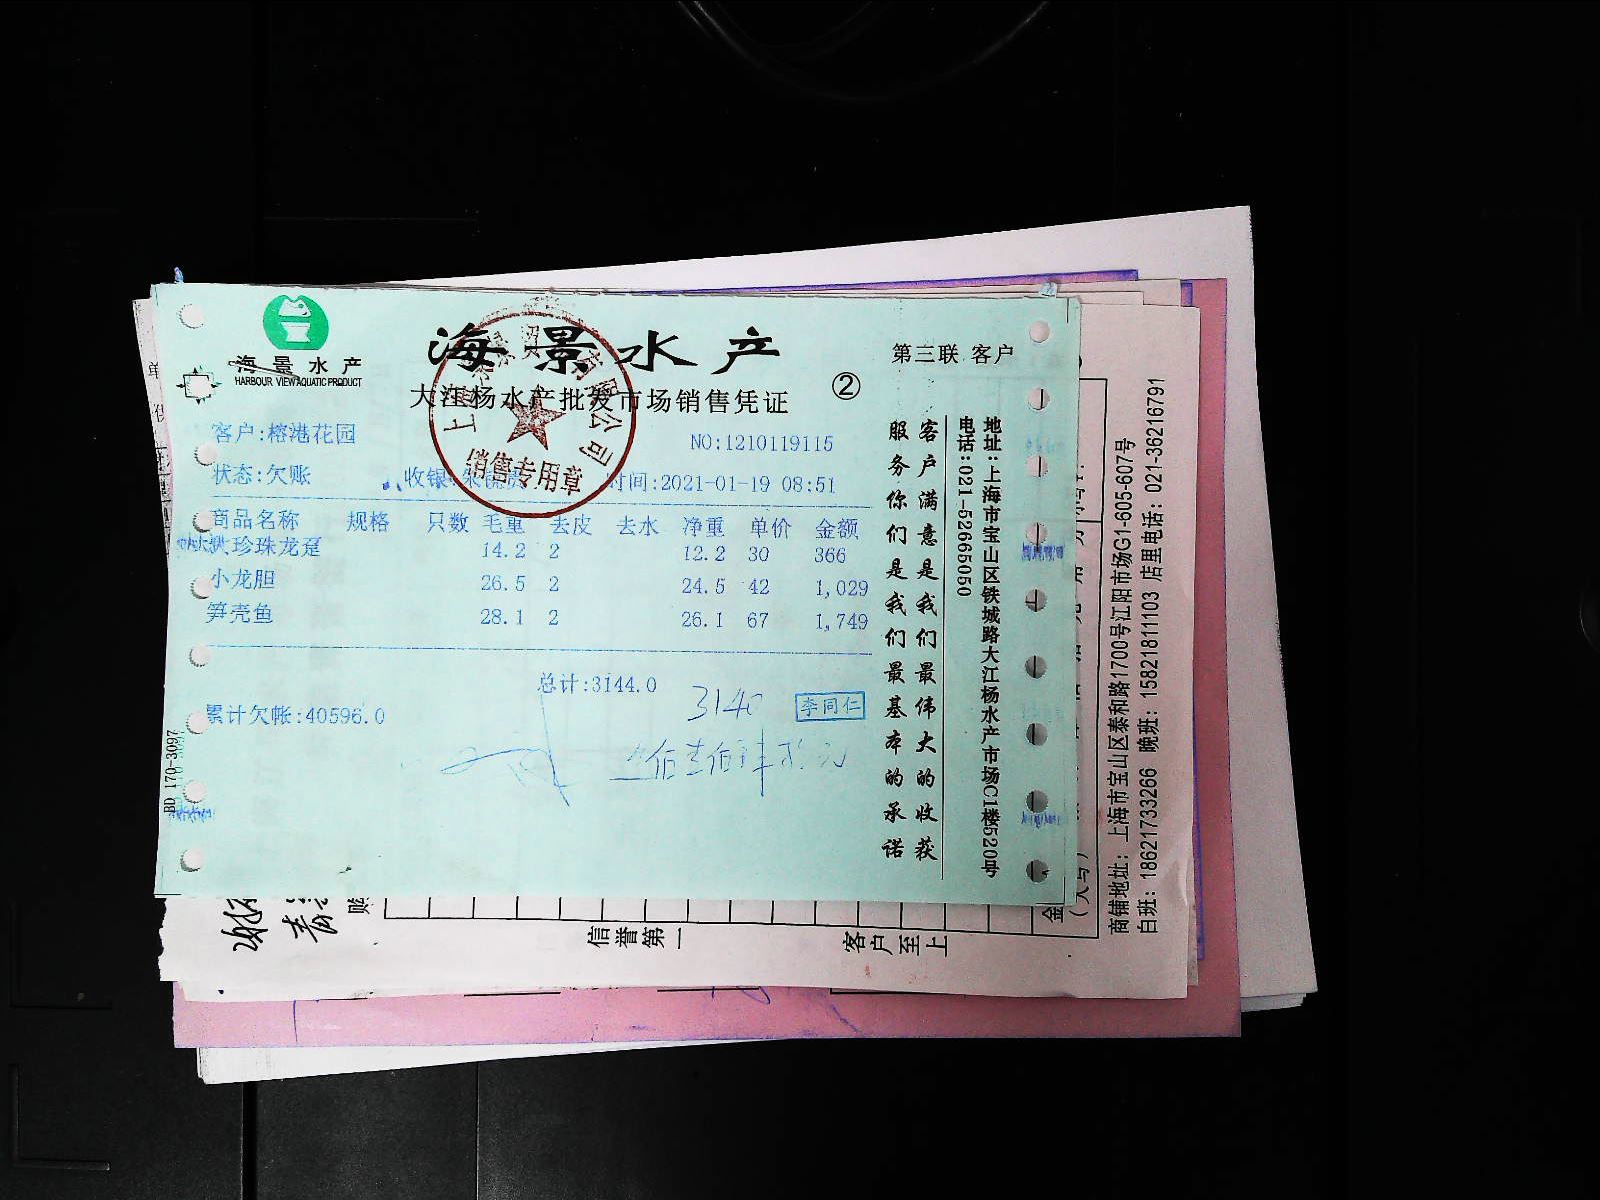 海景水产
HARBOUR VIEW AQUATIC PRODUCT
海景水产
大江杨水产批发市场销售凭证
②
第三联 客户
客户:榕港花园
NO:1210119115
状态:欠账
收银
时间:2021-01-19 08:51
有限公司
销售专用章
商品名称 规格 只数 毛重 去皮 去水 净重 单价 金额
珍珠龙趸 14.2 2 12.2 30 366
小龙胆 26.5 2 24.5 42 1,029
笋壳鱼 28.1 2 26.1 67 1,749
总计:3144.0
3140
李同仁
累计欠帐:40596.0
BD 170-3097
客户满意是我们最伟大的收获
服务你们是我们最基本的承诺
地址:上海市宝山区铁城路大江杨水产市场C1楼520号
电话:021-52665050
商铺地址:上海市宝山区泰和路1700号江阳市场G1-605-607号
白班:18621733266 晚班:15821811103 店里电话:021-36216791
信誉第一
客户至上